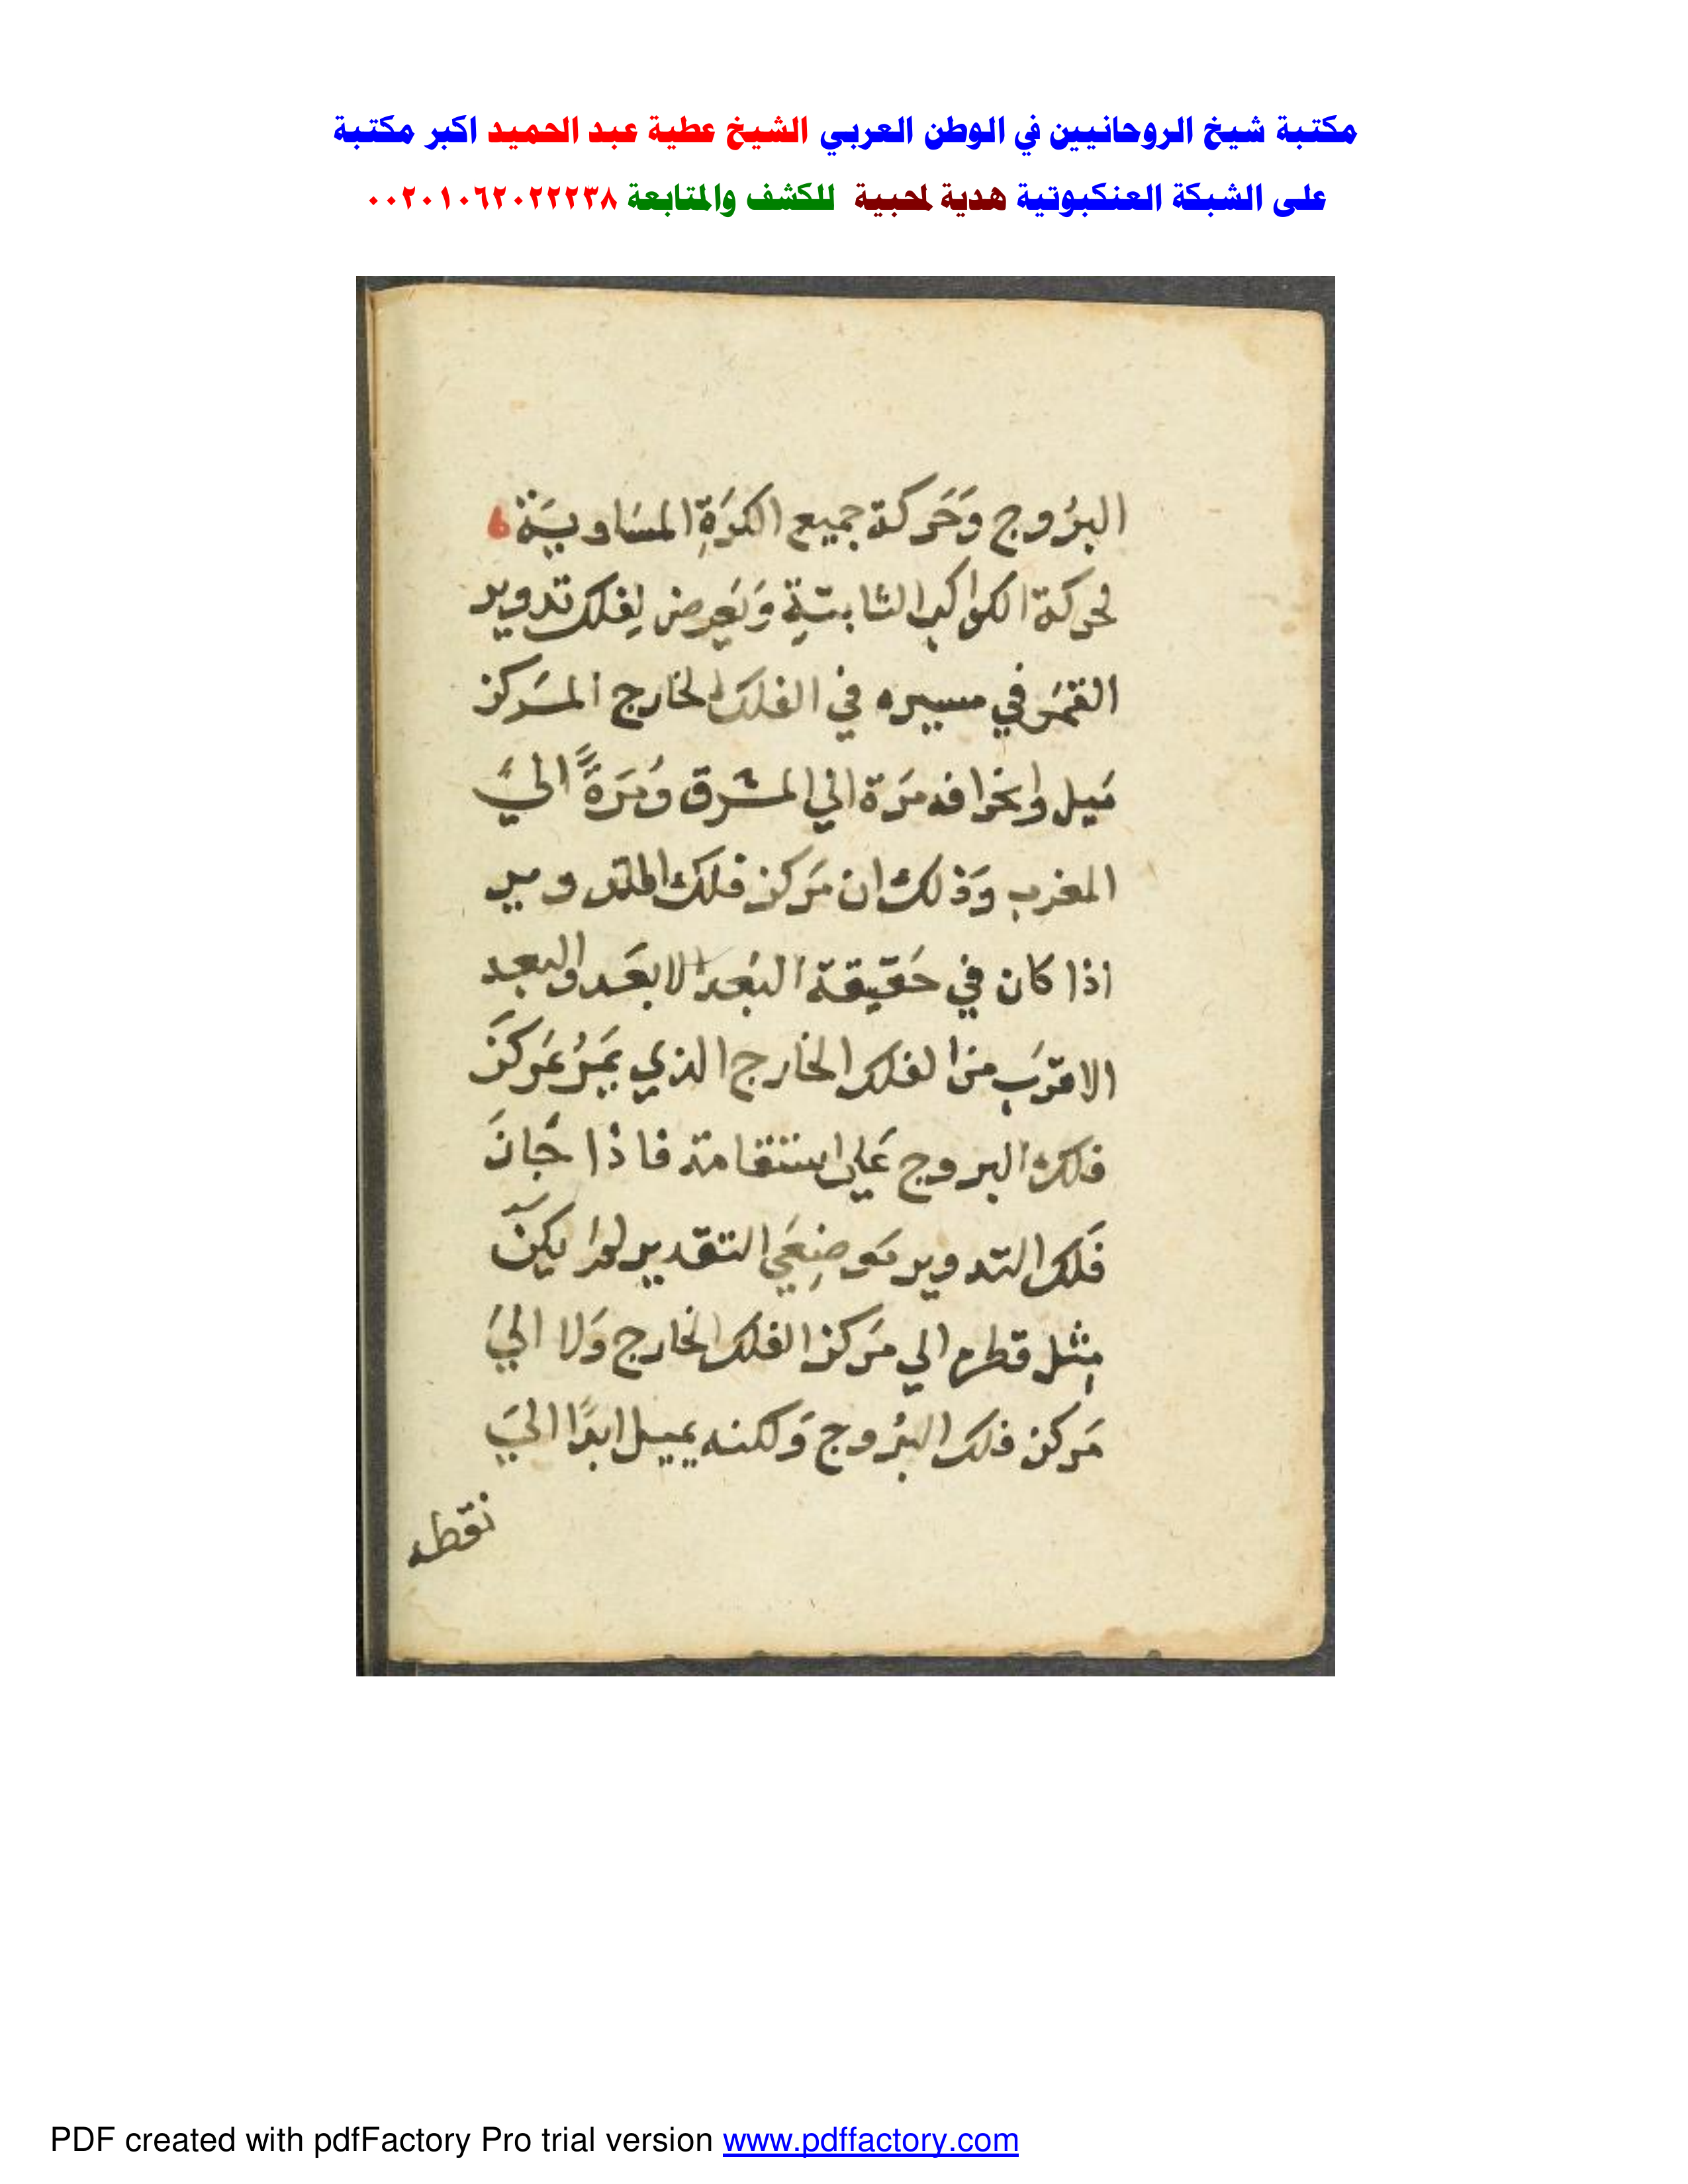 مكتبة شيخ الروحانيين في الوطن العربي الشيخ عطية عبد الحميد اكبر مكتبة
على الشبكة العنكبوتية هدية لمحبية للكشف والمتابعة ٠٠٢٠١٠٦٢٠٢٢٢٣٨
البرُوج وَحَركة جميع الكرَةِ المسَاويَة
لحركة الكواكب الثابتةِ وَيَعرِض لِفلك تدوير
القمَر في مسيره في الفلك الخارج المَركز
مَيل وانحرافه مَرة الي المشرق وَمَرةً اليَ
المغرب وَذلك ان مَركز فلك التدوير
اذا كان في حَقيقة البُعد الابعَد والبعد
الاقرَب من الفلك الخارج الذي يَمرُ بمَركزَ
فلك البروج عَلي استقامة فاذا جَازَ
فَلك التدوير مَوضِعَي التقدير لم يكنّ
مِثل قطره الي مَركز الفلك الخارج وَلا اليَ
مَركز فلك البرُوج وَلكنه يميل ابدًا اليَ
نقطه
PDF created with pdfFactory Pro trial version www.pdffactory.com